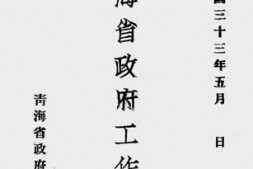 國三十三年五月　日
海省政府工作
青海省政府